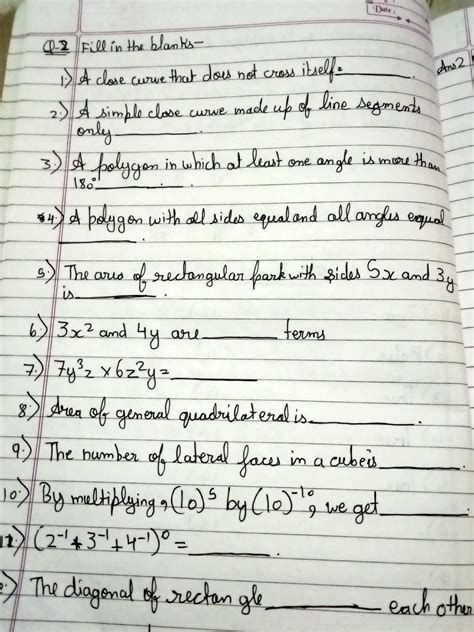 Date:
Q-2 Fill in the blanks-
Ans2
1:) A close curve that does not cross itself= ________.
2:) A simple close curve made up of line segments
only ________.
3:) A polygon in which at least one angle is more than
180° ________.
4:) A polygon with all sides equal and all angles equal
________.
5:) The area of rectangular park with sides 5x and 3y
is ________.
6:) 3x² and 4y are ________ terms
7:) 7y³z × 6z²y = ________
8:) Area of general quadrilateral is ________.
9:) The number of lateral faces in a cube is ________.
10:) By multiplying, (10)⁵ by (10)⁻¹⁰, we get ________.
11:) (2⁻¹+3⁻¹+4⁻¹)⁰ = ________.
The diagonal of rectangle ________ each other